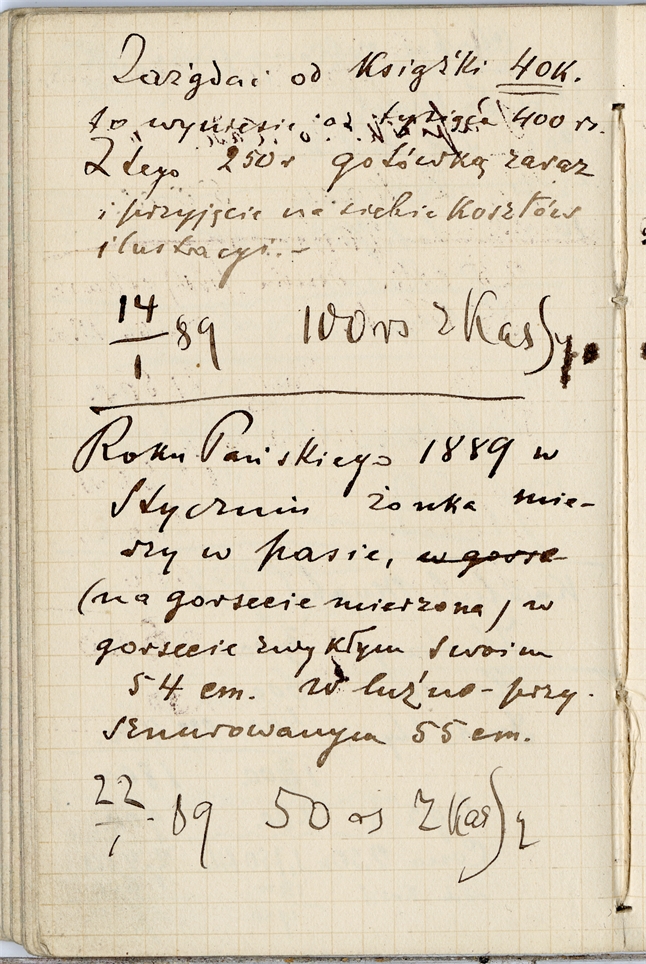 Zażądać od Książki 40k.
to wyniesie 400 rs.
Z tego 250 r gotówką zaraz
i przyjęcie na siebie kosztów
ilustracyi. –
14/1 89 100 rs z Kassy.
Roku Pańskiego 1889 w
Styczniu żonka mie-
rzy w pasie, w gorse
(na gorsecie mierzona) w
gorsecie zwykłym swoim
54 cm. w luźno-przy-
sznurowanym 55 cm.
22/1 89 50 rs z Kassy